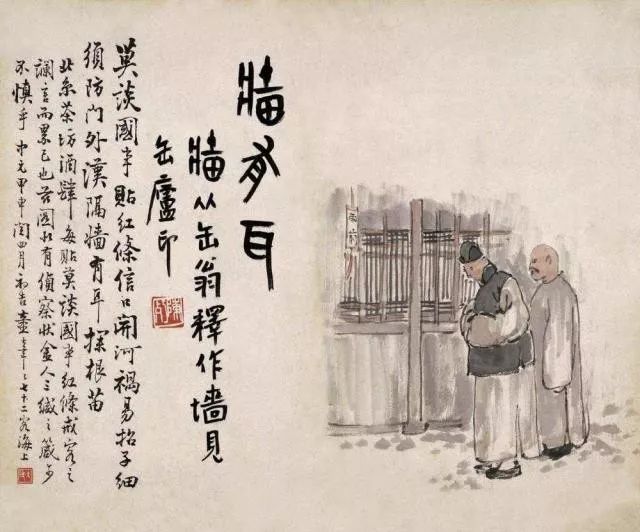 牆有耳
牆从缶翁釋作墻見
缶廬印
莫談國事貼紅條信口開河禍易招子細
須防門外漢隔牆有耳探根苗
北京茶坊酒肆每貼莫談國事紅條戒客之
讕言而累己也圖有偵察狀金人三緘之箴可
不慎乎中元甲申閏四月初吉童大年年七十二客海上